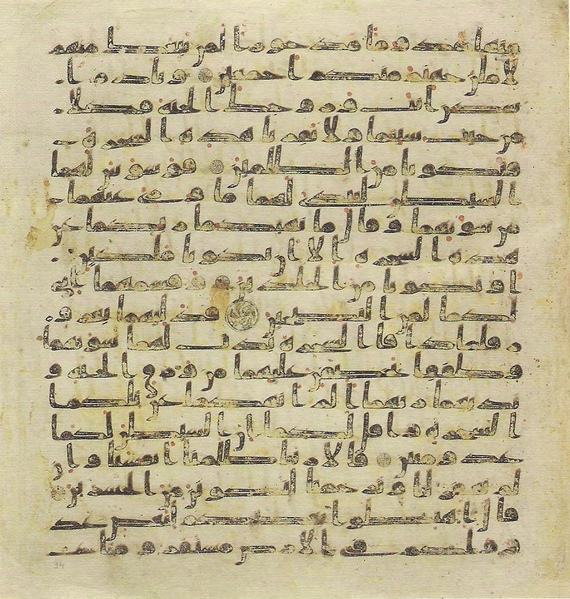 منها مذوما مدحورا لمن تبعك منهم
لاملن جهنم منكم اجمعين ويادم ا
سكن انت وزوجك الجنة فكلا
من حيث شيتما ولا تقربا هذه الشجرة فـ
تكونا من الظلمين فوسوس لهما
الشيطن ليبدي لهما ما وري عنهما
من سوتهما وقال ما نهيكما ربكما عن
هذه الشجرة الا ان تكونا ملكين
او تكونا من الخلدين وقسمهما اني
لكما لمن النصحين فدليهما بغرو
ر فلما ذاقا الشجرة بدت لهما سوتهما
وطفقا يخصفن عليهما من ورق الجنة و
نديهما ربهما الم انهكما عن تلكما
الشجرة واقل لكما ان الشيطن لكما
عدو مبين قالا ربنا ظلمنا انفسنا وان
لم تغفر لنا وترحمنا لنكونن من الخسرين
قال اهبطوا بعضكم لبعض عد
و ولكم في الارض مستقر ومتاع